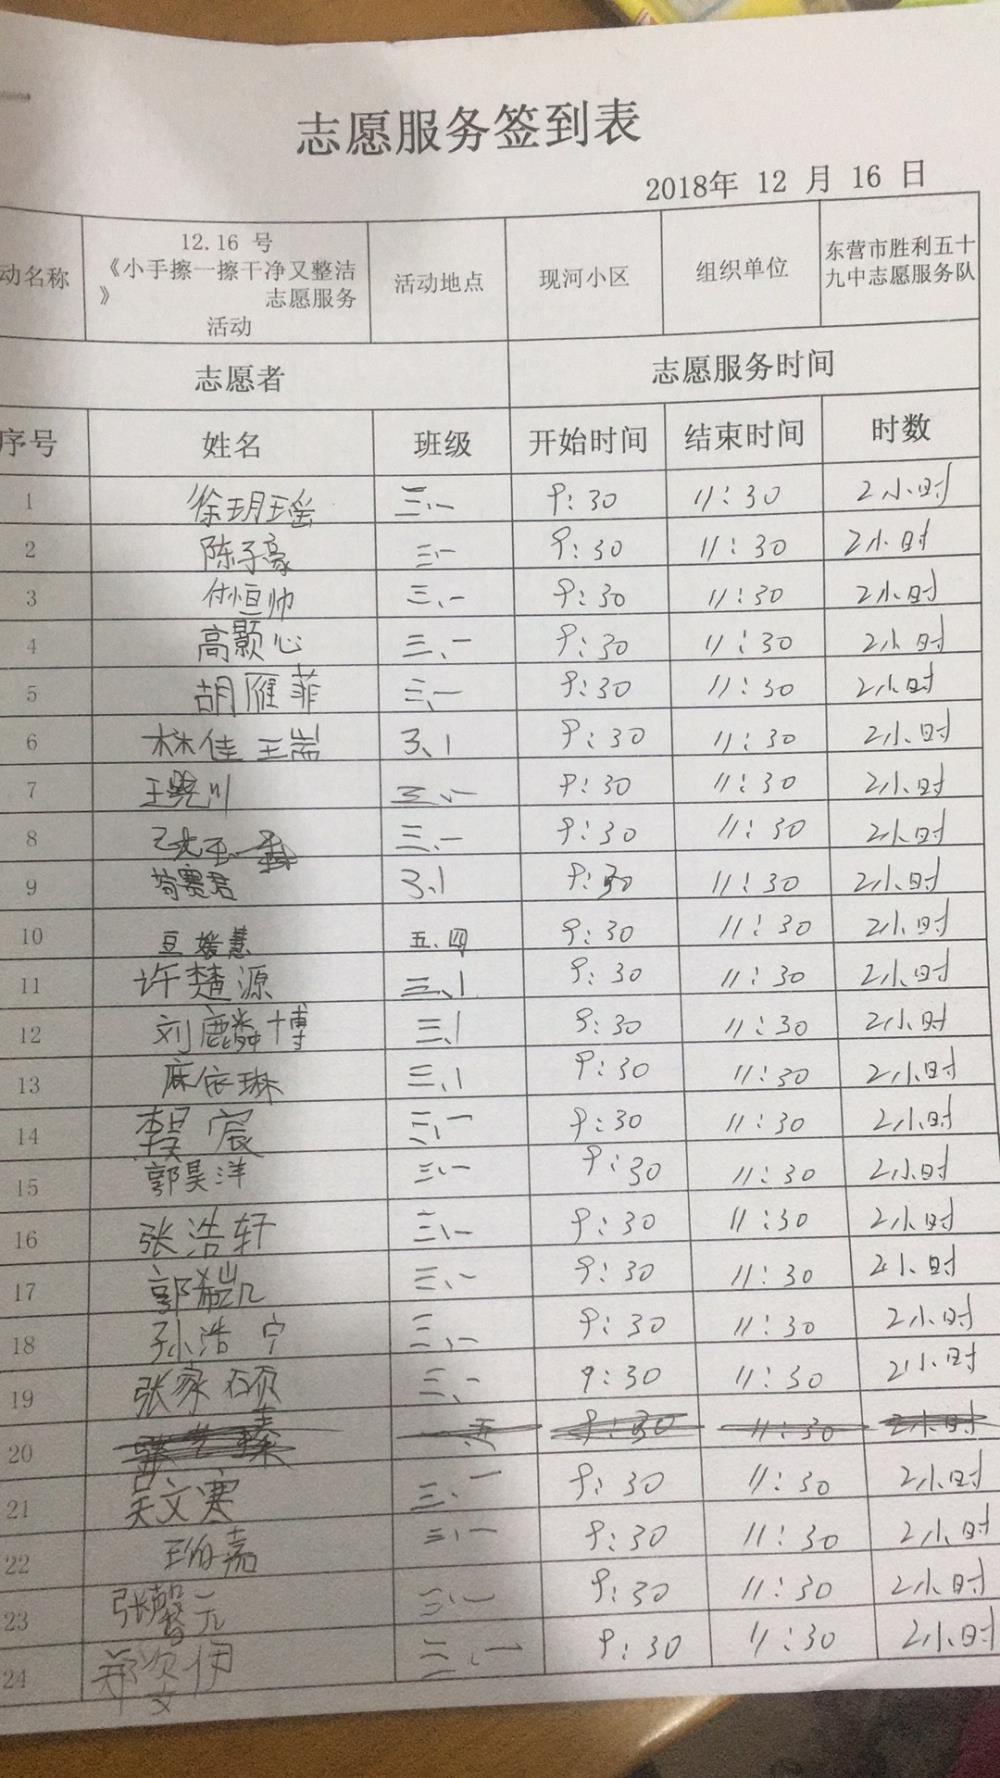 志愿服务签到表
2018年 12 月 16 日
动名称 12.16 号《小手擦一擦干净又整洁》志愿服务活动 活动地点 现河小区 组织单位 东营市胜利五十九中志愿服务队
志愿者 志愿服务时间
序号 姓名 班级 开始时间 结束时间 时数
1 徐玥瑶 三.一 9:30 11:30 2小时
2 陈子豪 三.一 9:30 11:30 2小时
3 付恒帅 三.一 9:30 11:30 2小时
4 高颢心 三.一 9:30 11:30 2小时
5 胡雁菲 三.一 9:30 11:30 2小时
6 林佳 3.1 9:30 11:30 2小时
7 王 川 三.一 9:30 11:30 2小时
8 三.一 9:30 11:30 2小时
9 荀赛君 3.1 9:30 11:30 2小时
10 豆媛慧 五.四 9:30 11:30 2小时
11 许楚源 三.1 9:30 11:30 2小时
12 刘麟博 三.1 9:30 11:30 2小时
13 麻依琳 三.1 9:30 11:30 2小时
14 宸 三.一 9:30 11:30 2小时
15 郭昊洋 三.一 9:30 11:30 2小时
16 张浩轩 三.一 9:30 11:30 2小时
17 郭凯 三.一 9:30 11:30 2小时
18 孙浩宁 三.一 9:30 11:30 2小时
19 张家硕 三.一 9:30 11:30 2小时
20 9:30 11:30 2小时
21 吴文寒 三.一 9:30 11:30 2小时
22 嘉 三.一 9:30 11:30 2小时
23 张馨元 三.一 9:30 11:30 2小时
24 郑 伊 三.一 9:30 11:30 2小时